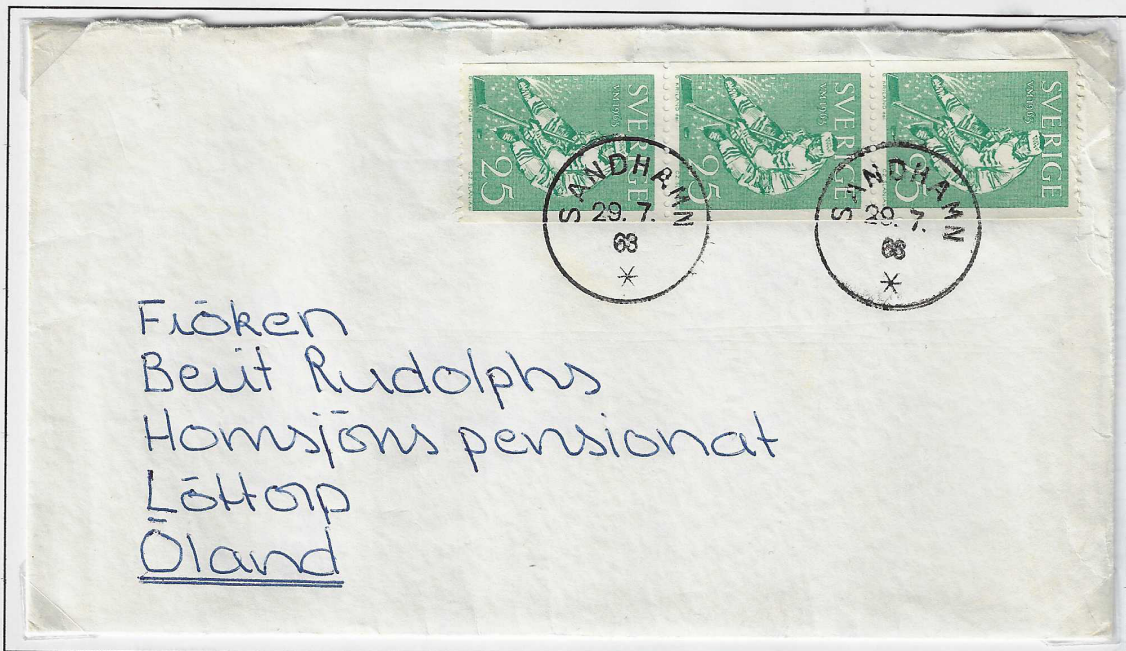 SVERIGE
VM 1963
25
SVERIGE
VM 1963
25
SVERIGE
VM 1963
25
SANDHAMN
29. 7.
63
SANDHAMN
29. 7.
63
Fröken
Berit Rudolphs
Hornsjöns pensionat
Löttorp
Öland